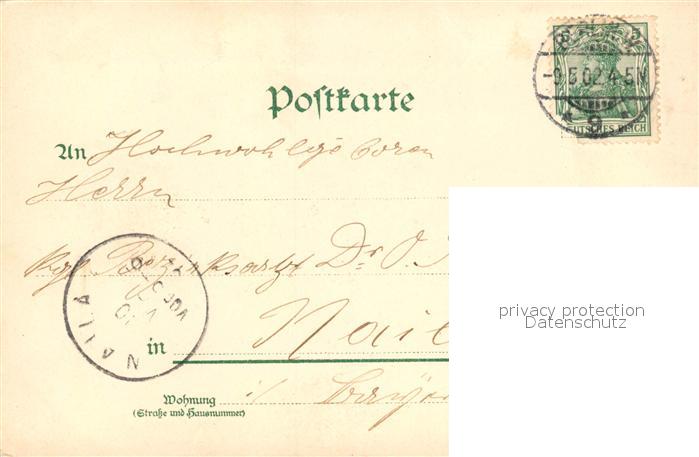 BERLIN
-9.5.02.4-5N
* 9 *
5 5
DEUTSCHES REICH
Postkarte
An Hochwohlgeboren
Herrn
Kgl. Bezirksarzt Dr. O.
in Nail
i/ Bayer
NAILA
Wohnung
(Straße und Hausnummer)
privacy protection
Datenschutz